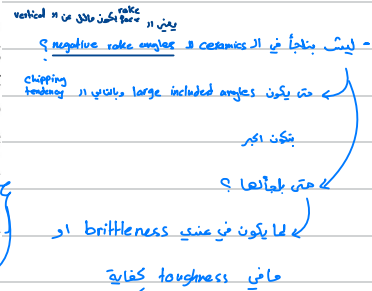 يعني الـ rake face تكون مائل عن الـ vertical
- ليش بنلجأ في الـ ceramics لـ negative rake angles ؟
حتى يكون large included angles وبالتالي الـ chipping tendency
بتكون اكبر
متى بلجألها ؟
لما يكون في عندي brittleness او
ما في toughness كفاية